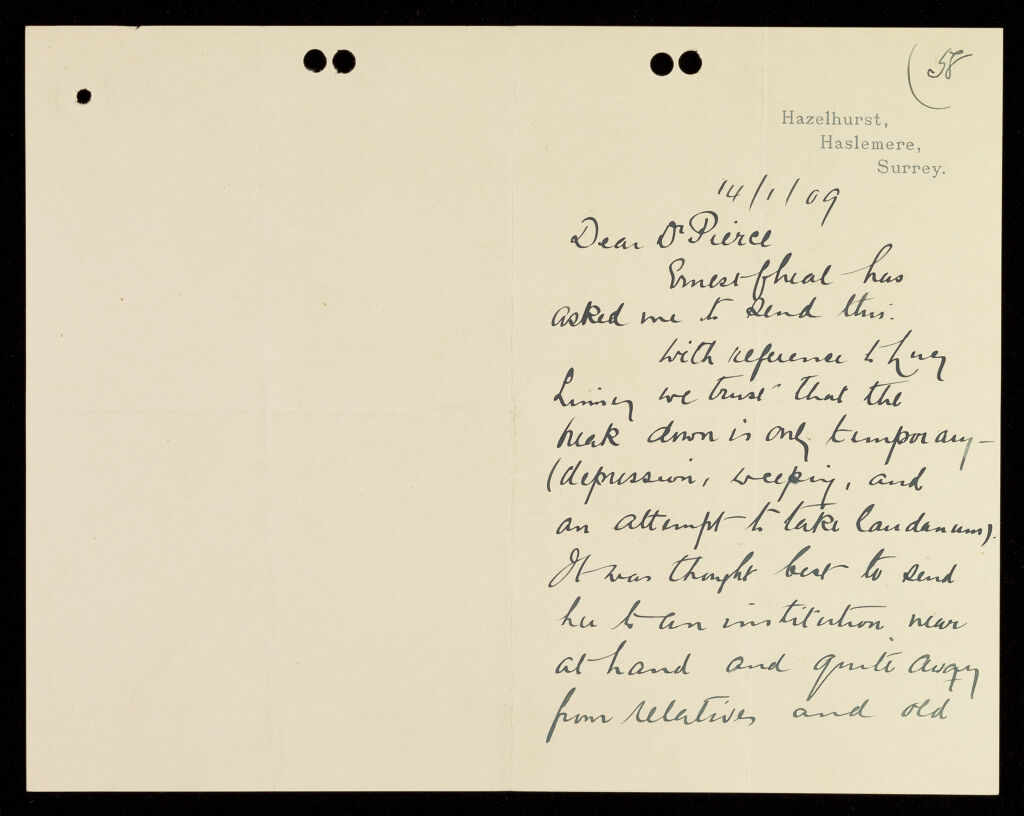 (58
Hazelhurst,
Haslemere,
Surrey.
14/1/09
Dear Dr Pierce
Ernest has
asked me to send this.
With reference to Lucy
we trust that the
break down is only temporary –
(depression, weeping, and
an attempt to take laudanum).
It was thought best to send
her to an institution near
at hand and quite away
from relatives and old